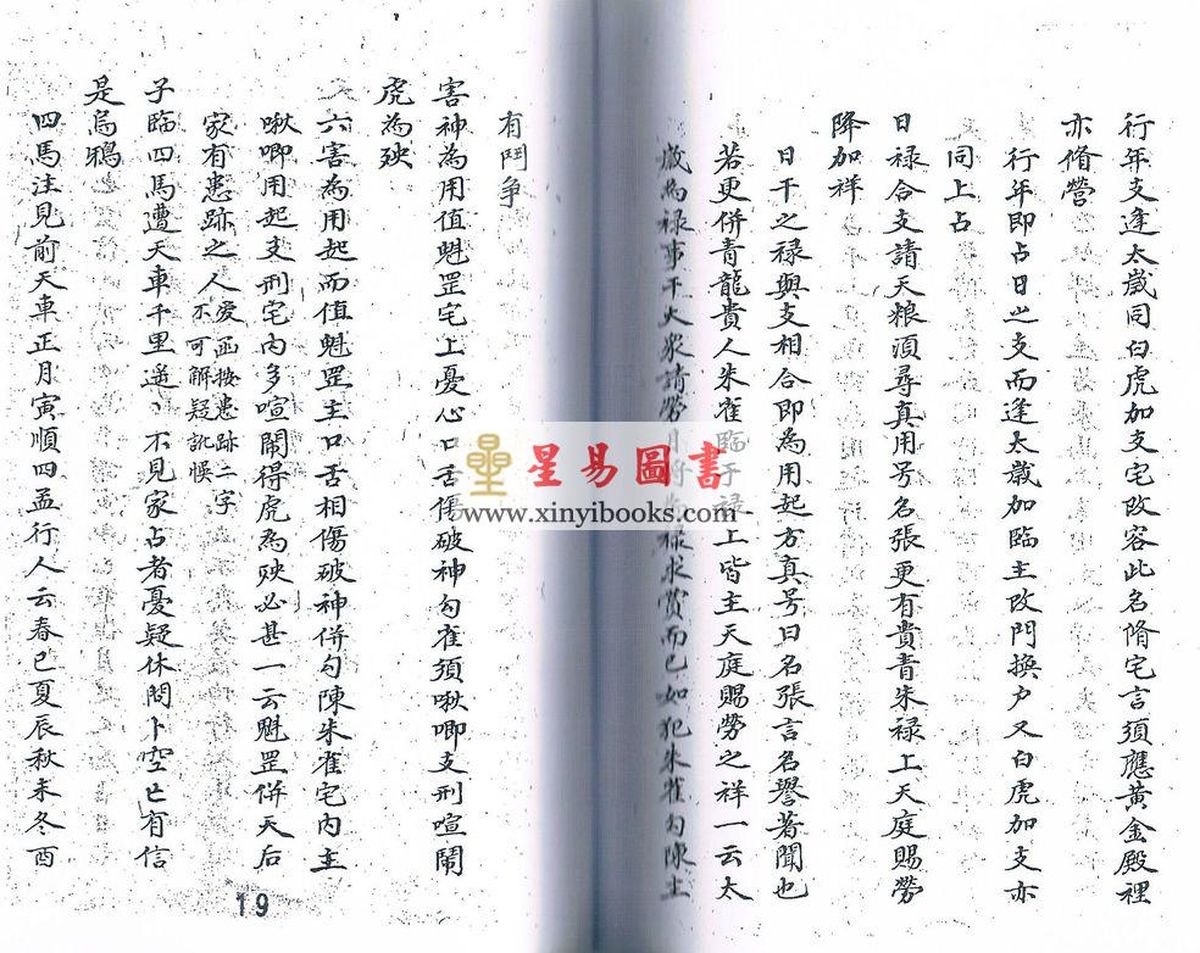 行年支逢太歲同白虎加支宅改容此名脩宅言須應黃金殿裡
亦脩營
行年即占日之支而逢太歲加臨主改門換户又白虎加支亦
同上占
日禄合支請天粮須尋真用号名張更有貴青朱禄上天庭賜勞
降加祥
日干之禄與支相合即為用起方真号曰名張言名譽著聞也
若更併青龍貴人朱雀臨于禄上皆主天庭賜勞之祥一云太
歲為禄事干大衆請勞月將為禄求賞而已如犯朱雀勾陳主
有鬥争
害神為用值魁罡宅上憂心口舌傷破神勾雀須啾唧支刑喧鬧
虎為殃
六害為用起而值魁罡主口舌相傷破神併勾陳朱雀宅内主
啾唧用起支刑宅内多喧鬧得虎為殃必甚一云魁罡併天后
家有患跡之人
爱函按患跡二字
不可解疑訛悞
子臨四馬遭天車千里遥丶不見家占者憂疑休問卜空亡有信
是烏鴉
四馬注見前天車正月寅順四孟行人云春巳夏辰秋未冬酉
19
星易圖書
www.xinyibooks.com